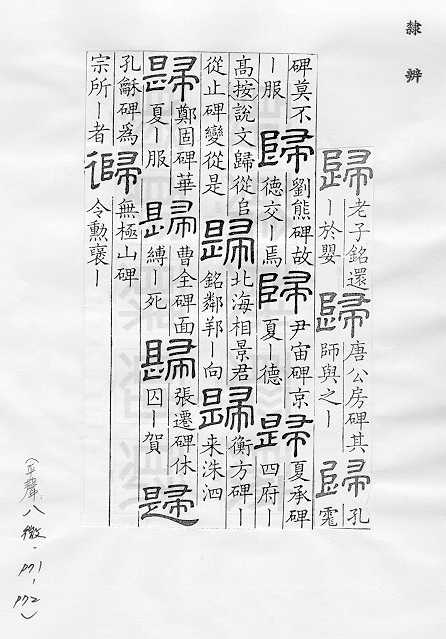 隸辨
歸 老子銘還
ー於嬰
歸 唐公房碑其
師與之ー
歸 孔
霐
碑莫不
ー服
歸 劉熊碑故
德交ー焉
歸 尹宙碑京
夏ー德
歸 夏承碑
四府ー
高按說文歸從𠂤
從止碑變從是
歸 北海相景君
銘鄰邦ー向
歸 衡方碑ー
来洙泗
歸 鄭固碑華
夏ー服
歸 曹全碑面
縛ー死
歸 張遷碑休
囚ー賀
歸
孔龢碑為
宗所ー者
歸 無極山碑
令勳襃ー
(平聲八微·P71-P72)